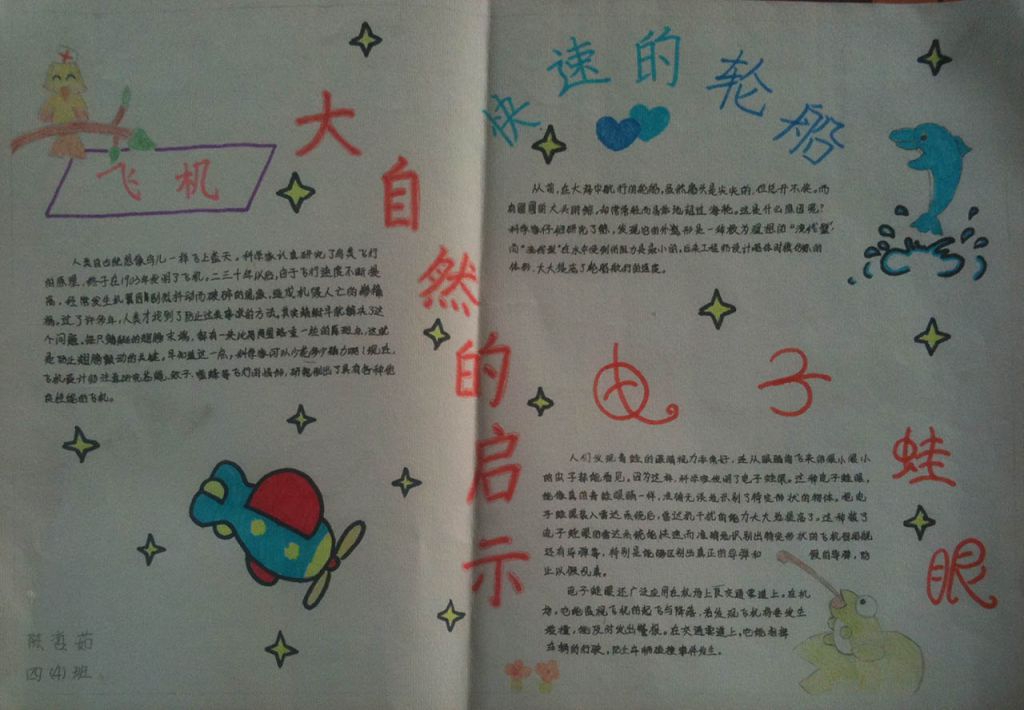 大自然的启示
飞机
人类自古就想像鸟儿一样飞上蓝天,科学家认真研究了鸟类飞行
的原理,终于在1903年发明了飞机。二三十年以后,由于飞行速度不断提
高,经常发生机翼因剧烈抖动而破碎的现象,造成机毁人亡的惨
祸。过了许多年,人类才找到了防止这类事故的方法。其实蜻蜓早就解决了这
个问题。
是防止翅膀颤动的关键。
飞机设计师
良性能的飞机。
陈
四(4)班
快速的轮船
从前,在大海中航行的轮船,虽然船头是尖尖的,但总开不快。而
大头的鲸,却常常轻而易举地超过海轮。这是什么原因呢?
科学家仔细研究了鲸,发现它的外形是一种极为理想的“流线型”
而“流线型”在水中受到的阻力是最小的。后来工程师设计船体时模仿鲸的
体形,大大提高了轮船航行的速度。
电子蛙眼
人们发现青蛙的眼睛视力非常好,连从眼睛前飞来的很小很小
的虫子都能看见。因为这样,科学家发明了电子蛙眼。这种电子蛙眼,
能像真的青蛙眼睛一样,准确无误地识别了特定形状的物体。把电
子蛙眼装入雷达系统后,雷达抗干扰的能力大大地提高了。这种装了
电子蛙眼的雷达系统能快速而准确地识别出特定形状的飞机
还有导弹等,特别是能够区别出真正的导弹和 假的导弹,防
止以假乱真。
电子蛙眼还广泛应用在机场上及交通要道上。在机
场,它能监视飞机的起飞与降落,若发现飞机将要发生
碰撞,能及时发出警报。在交通要道上,它能指挥
车辆的行驶,防止车辆碰撞事件发生。